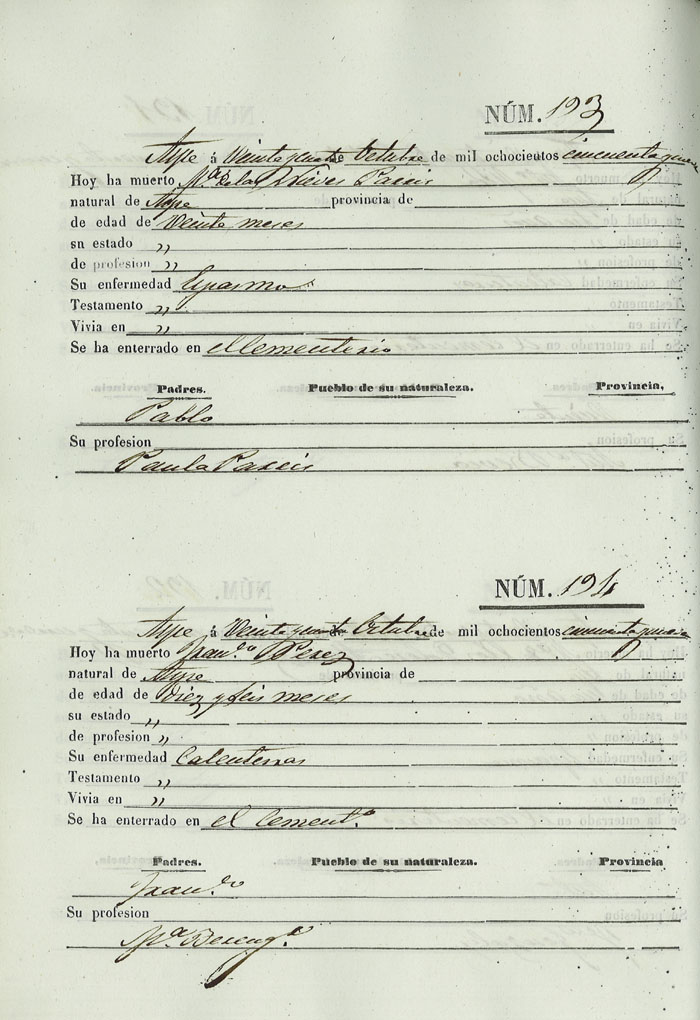 NÚM. 193
Aspe á Veinte y cuatro de Octubre de mil ochocientos cincuenta y
Hoy ha muerto Mª. de las Nieves
natural de Aspe provincia de
de edad de Veinte meses
su estado "
de profesion "
Su enfermedad Espasmo
Testamento "
Vivia en "
Se ha enterrado en el Cementerio
Padres. Pueblo de su naturaleza. Provincia,
Pablo
Su profesion
Paula
NÚM. 194
Aspe á Veinte y cuatro de Octubre de mil ochocientos cincuenta y
Hoy ha muerto Franco. Perez
natural de Aspe provincia de
de edad de diez y seis meses
su estado "
de profesion "
Su enfermedad Calenturas
Testamento "
Vivia en "
Se ha enterrado en el Cement.o
Padres. Pueblo de su naturaleza. Provincia
Franco.
Su profesion
Mª.